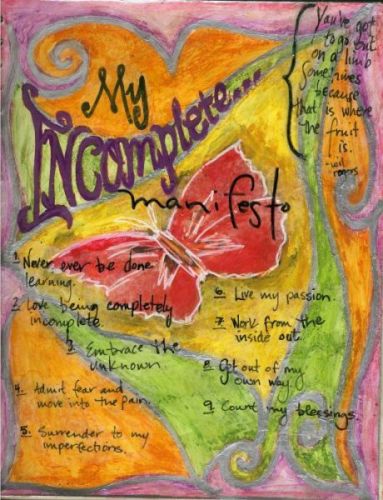 My
Incomplete...
manifesto
{You've got
to go out
on a limb
sometimes
because
that is where
the fruit
is.
-will
rogers
1. Never ever be done
learning.
2. Love being completely
incomplete.
3. Embrace the
unknown
4. Admit fear and
move into the pain.
5. Surrender to my
imperfections.
6. Live my passion.
7. Work from the
inside out.
8. Get out of my
own way.
9. Count my blessings.